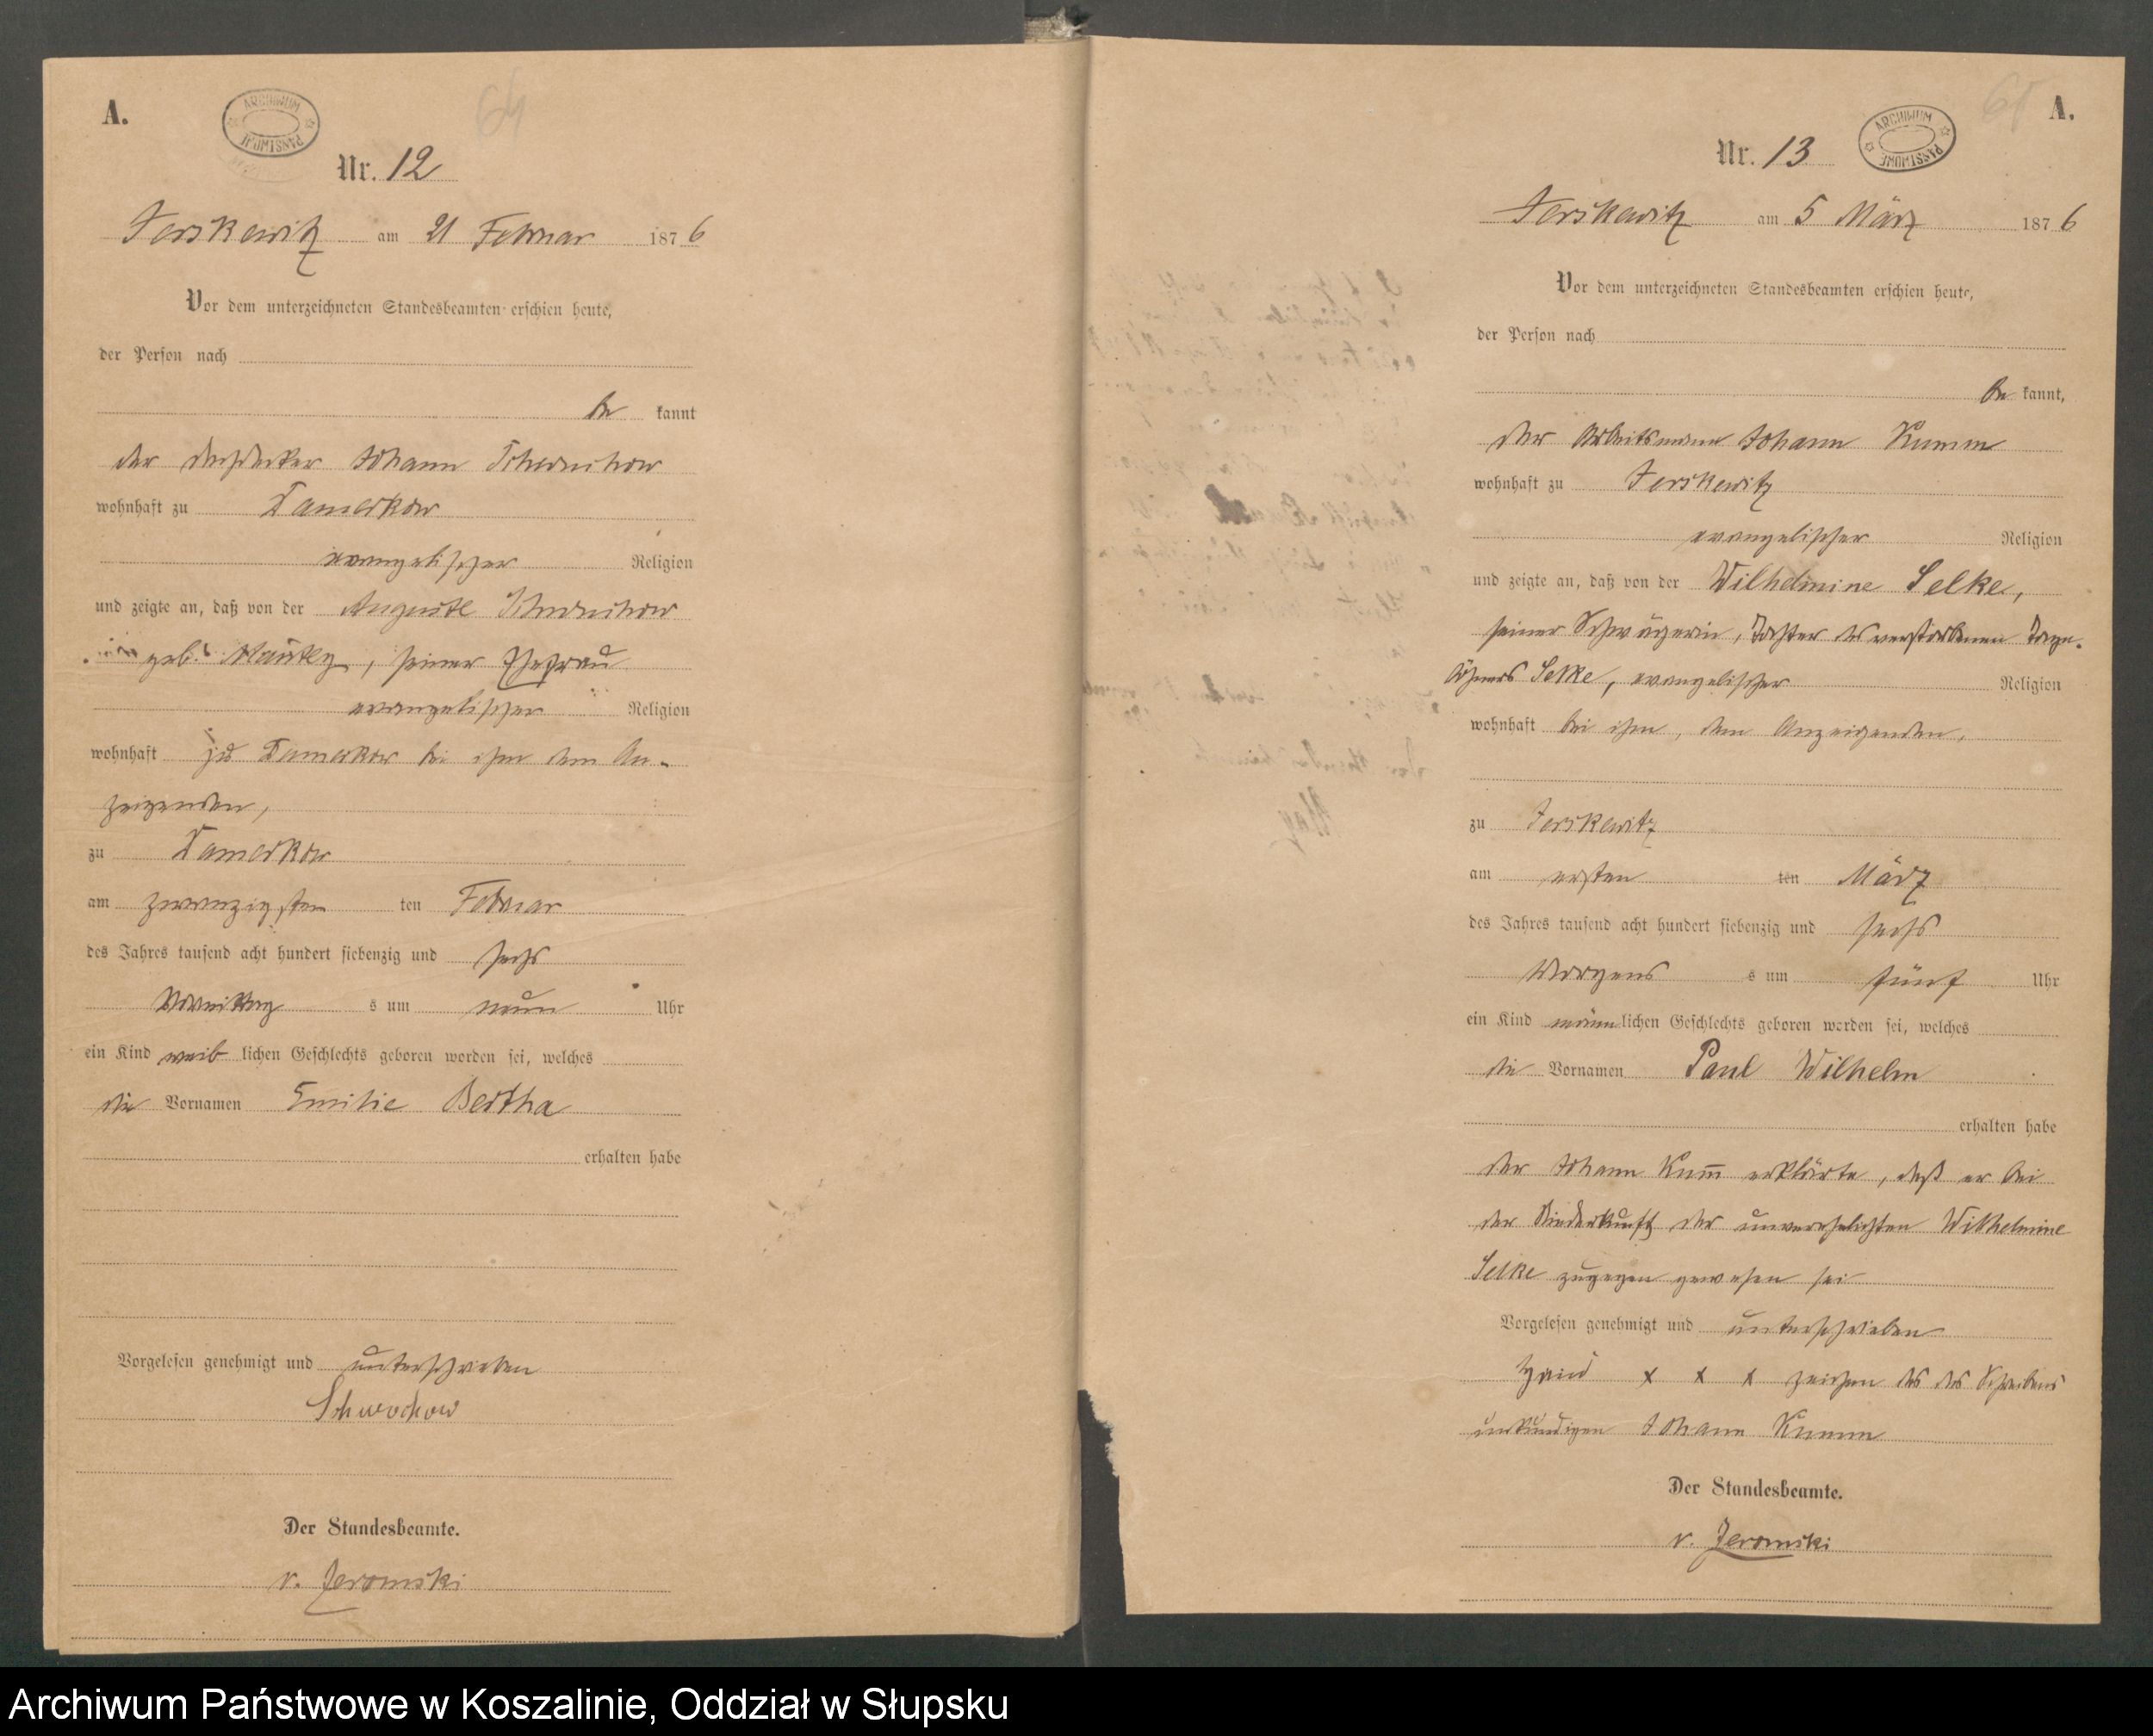 A.
ARCHIWUM PAŃSTWOWE
64
Nr. 12
Jerskewitz am 21 Februar 1876
Vor dem unterzeichneten Standesbeamten erschien heute,
der Person nach
be kannt
der Johann
wohnhaft zu Damerkow
evangelischer Religion
und zeigte an, daß von der Auguste
geb. , seiner Ehefrau
evangelischer Religion
wohnhaft zu Damerkow bei ihm dem An-
zeigenden,
zu Damerkow
am zwanzigsten ten Februar
des Jahres tausend acht hundert siebenzig und sechs
Vormittag s um neun Uhr
ein Kind weib lichen Geschlechts geboren worden sei, welches
die Vornamen Emilie Bertha
erhalten habe
Vorgelesen genehmigt und unterschrieben
Schwochow
Der Standesbeamte.
v. Jeromski
65
A.
ARCHIWUM PAŃSTWOWE
Nr. 13
Jerskewitz am 5 März 1876
Vor dem unterzeichneten Standesbeamten erschien heute,
der Person nach
be kannt,
der Arbeitsmann Johann Kumm
wohnhaft zu Jerskewitz
evangelischer Religion
und zeigte an, daß von der Wilhelmine Selke,
seiner Schwägerin, Tochter des verstorbenen Tage-
löhners Selke, evangelischer Religion
wohnhaft bei ihm, dem Anzeigenden,
zu Jerskewitz
am ersten ten März
des Jahres tausend acht hundert siebenzig und sechs
Morgens s um fünf Uhr
ein Kind männlichen Geschlechts geboren worden sei, welches
die Vornamen Paul Wilhelm
erhalten habe
der Johann Kum̅ erklärte, daß er bei
der Niederkunft der unverehelichten Wilhelmine
Selke zugegen gewesen sei
Vorgelesen genehmigt und unterschrieben
Hand x x x zeichen des des Schreibens
unkundigen Johann Kumm
Der Standesbeamte.
v. Jeromski
Archiwum Państwowe w Koszalinie, Oddział w Słupsku